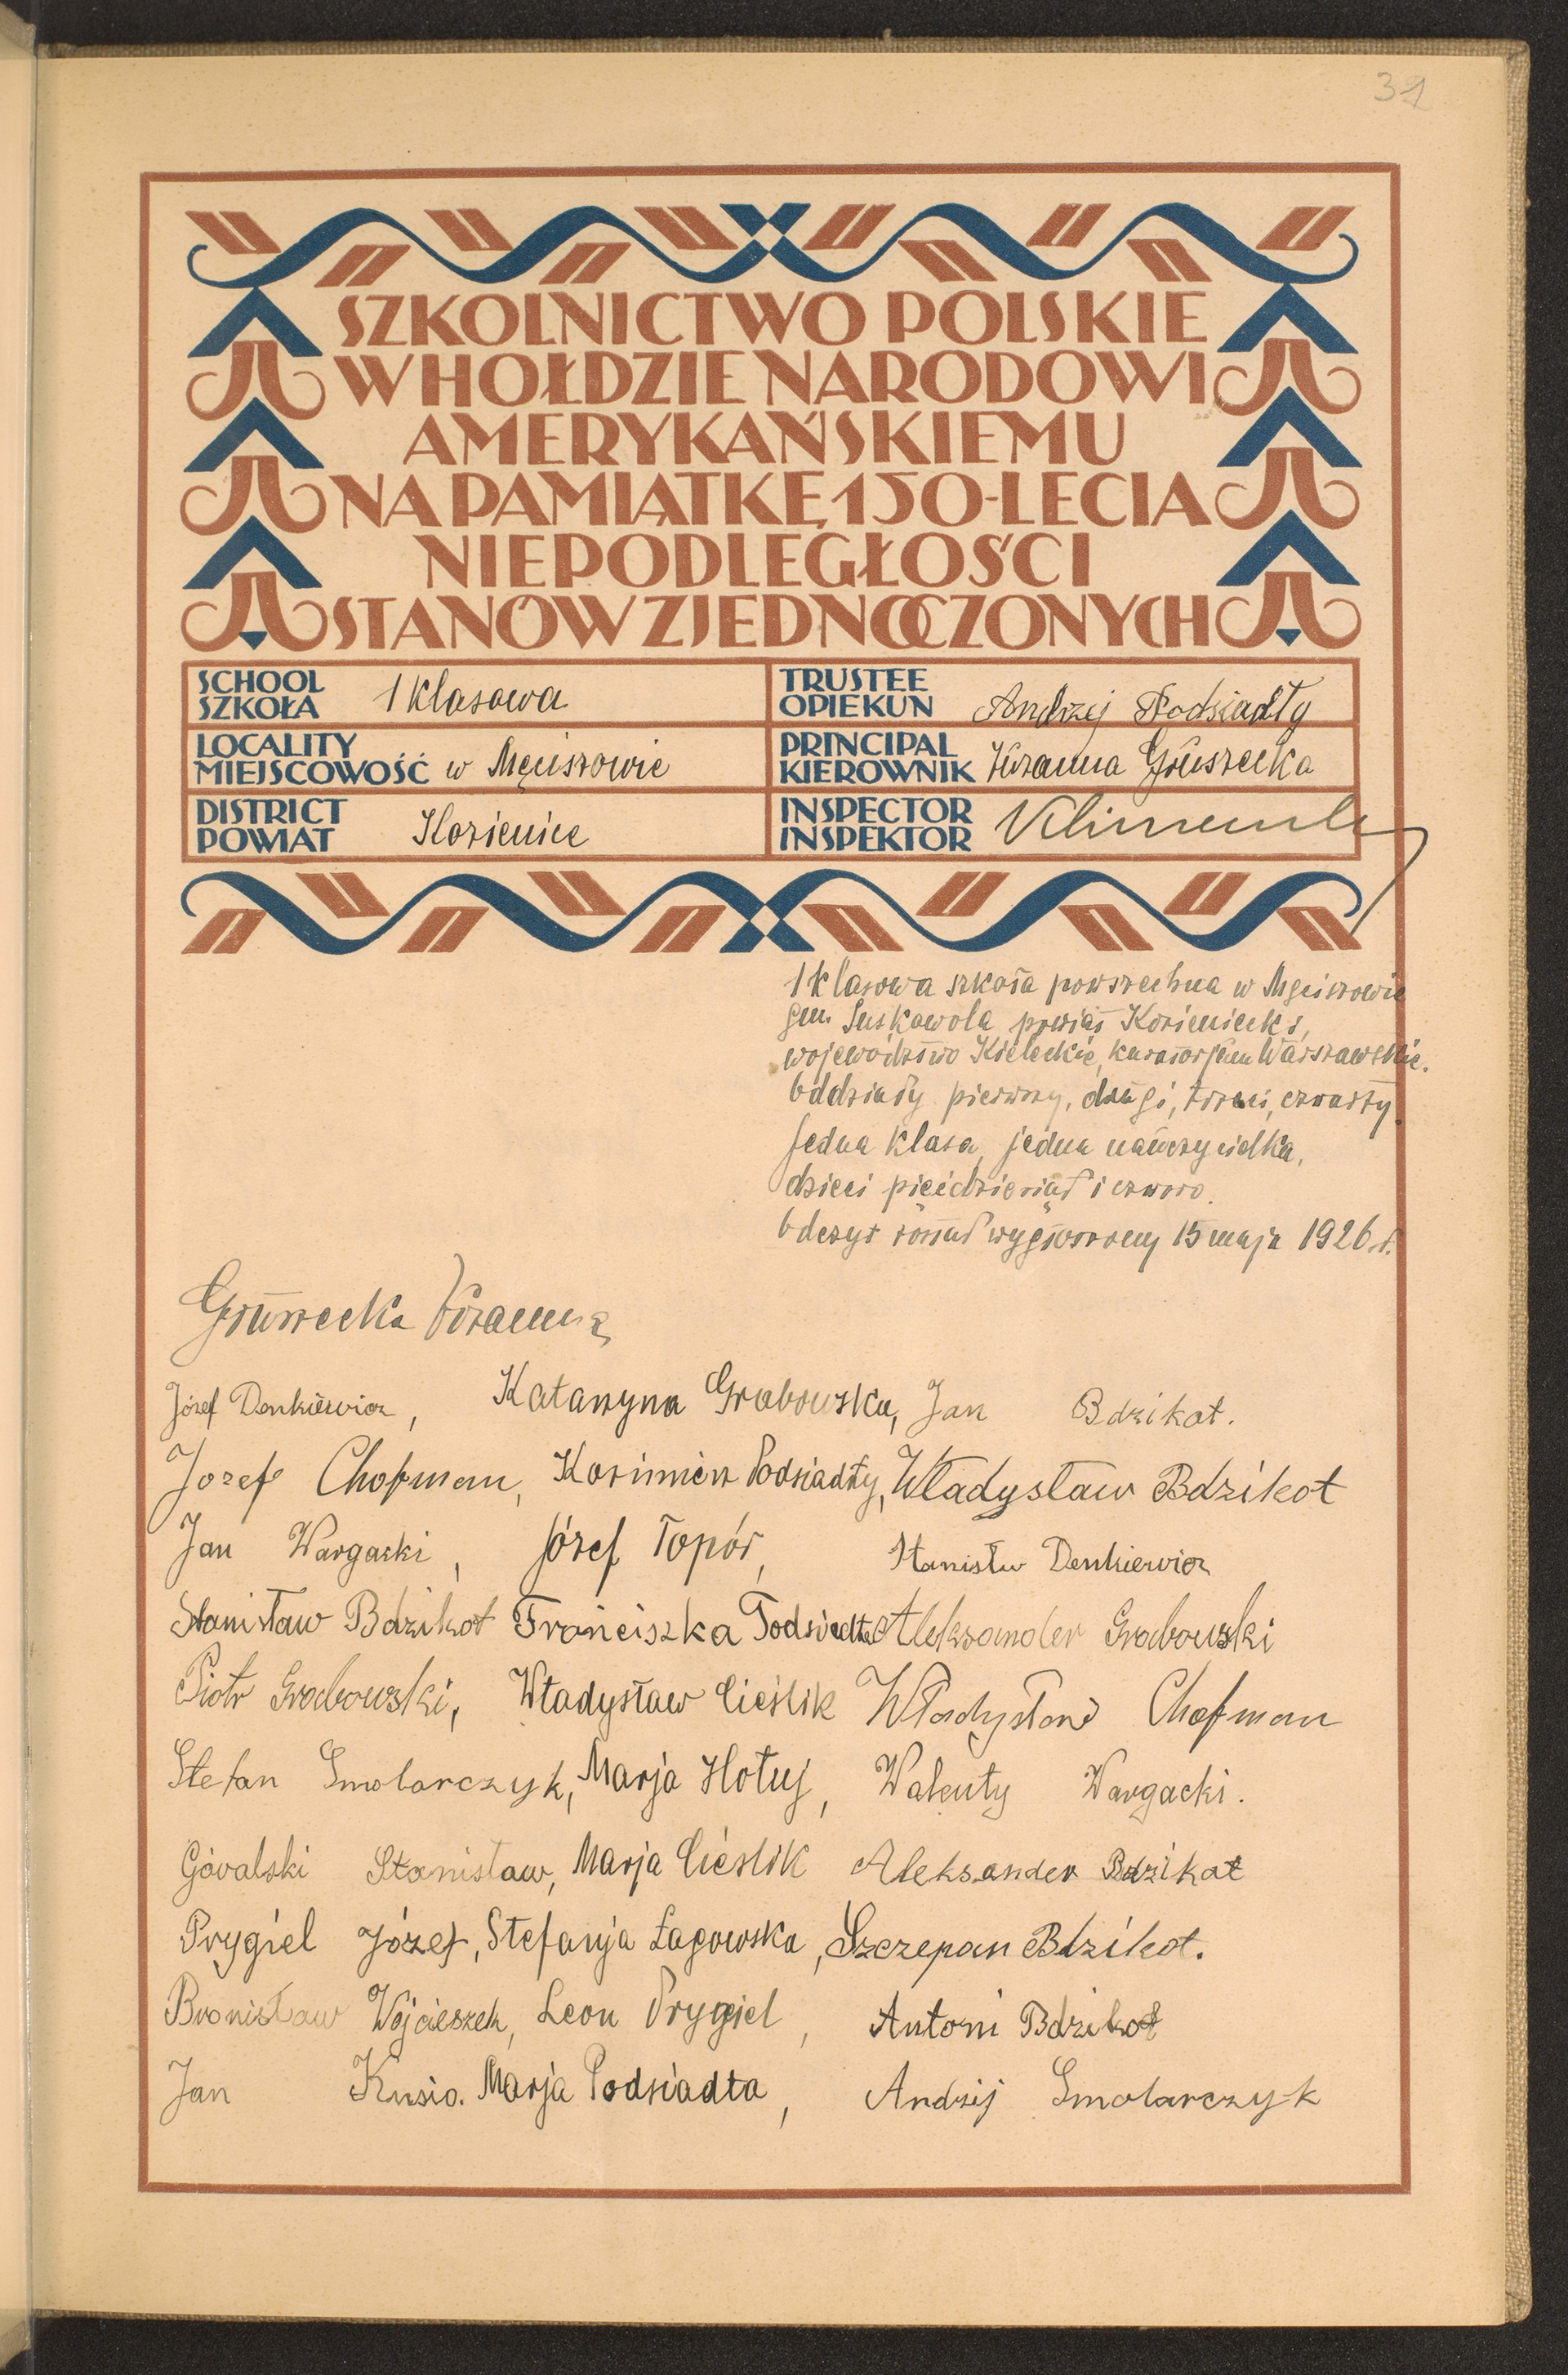 31
SZKOLNICTWO POLSKIE
W HOŁDZIE NARODOWI
AMERYKAŃSKIEMU
NA PAMIĄTKĘ 150-LECIA
NIEPODLEGŁOŚCI
STANÓW ZJEDNOCZONYCH
SCHOOL
SZKOŁA 1 klasowa
TRUSTEE
OPIEKUN Andrzej Podsiadły
LOCALITY
MIEJSCOWOŚĆ w Męciszowie
PRINCIPAL
KIEROWNIK Zuzanna Gruszecka
DISTRICT
POWIAT Kozienice
INSPECTOR
INSPEKTOR
1 klasowa szkoła powszechna w Męciszowie
gm. Suskowola powiat Kozienicki,
województwo Kieleckie, kuratorjum Warszawskie.
Oddziały pierwszy, drugi, trzeci, czwarty.
Jedna klasa, jedna nauczycielka,
dzieci pięćdziesiąt i czworo.
Odczyt został wygłoszony 15 maja 1926 r.
Gruszecka Zuzanna
Józef Denkiewicz, Katarzyna Grabowska, Jan Bdzikot.
Jozef Chofman, Kazimierz Podsiadły, Władysław Bdzikot
Jan Wargacki, Józef Topór, Stanisłw Denkiewicz
Stanisław Bdzikot Franciszka Podsiadła Aleksander Grabowski
Piotr Grabowski, Władysław Cieślik Władysław Chofman
Stefan Smolarczyk, Marja Hołuj, Walenty Wargacki.
Góralski Stanisław, Marja Cieślik Aleksander Bdzikot
Prygiel Józef, Stefanja Łagowska, Szczepan Bdzikot.
Bronisław Wojcieszek, Leon Prygiel, Antoni Bdzikot
Jan Kusio. Marja Podsiadła, Andrzij Smolarczyk